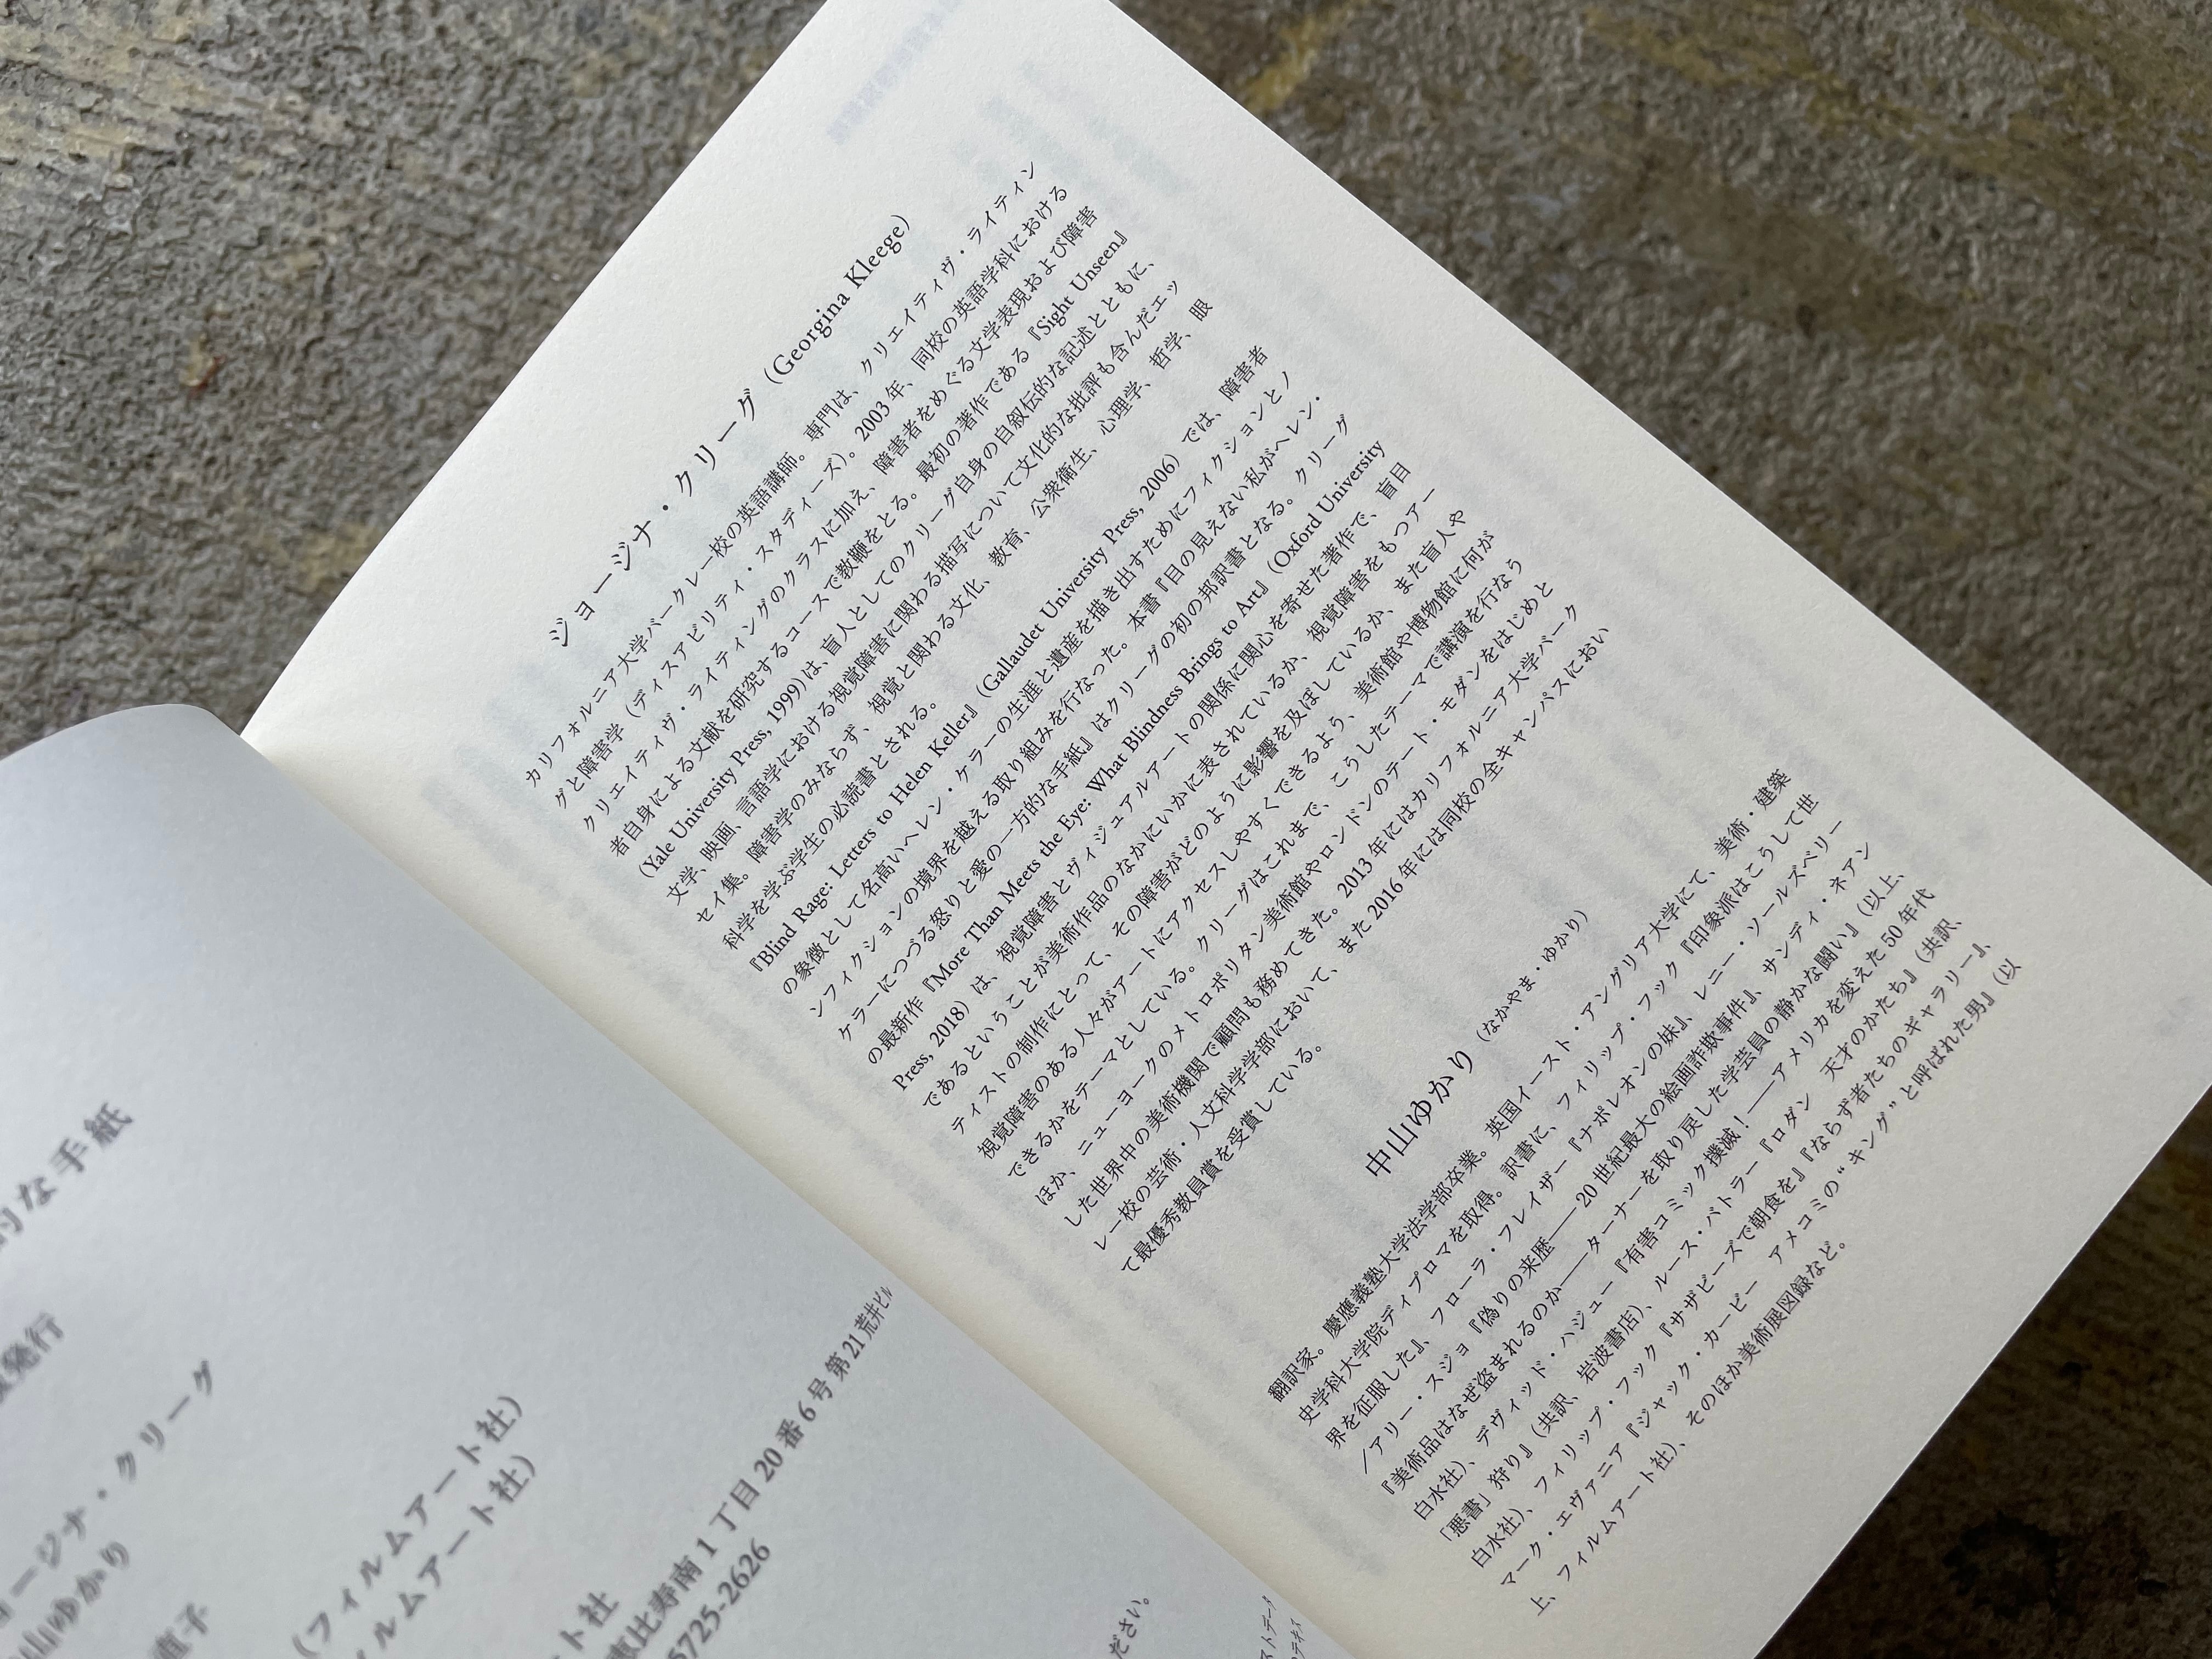 ジョージナ・クリーグ（Georgina Kleege）
カリフォルニア大学バークレー校の英語講師。専門は、クリエイティヴ・ライティン
グと障害学（ディスアビリティ・スタディーズ）。2003年、同校の英語学科における
クリエイティヴ・ライティングのクラスに加え、障害者をめぐる文学表現および障害
者自身による文献を研究するコースで教鞭をとる。最初の著作である『Sight Unseen』
（Yale University Press, 1999）は、盲人としてのクリーグ自身の自叙伝的な記述とともに、
文学、映画、言語学における視覚障害に関わる描写について文化的な批評も含んだエッ
セイ集。障害学のみならず、視覚と関わる文化、教育、公衆衛生、心理学、哲学、眼
科学を学ぶ学生の必読書とされる。
『Blind Rage: Letters to Helen Keller』（Gallaudet University Press, 2006）では、障害者
の象徴として名高いヘレン・ケラーの生涯と遺産を描き出すためにフィクションとノ
ンフィクションの境界を越える取り組みを行なった。本書『目の見えない私がヘレン・
ケラーにつづる怒りと愛の一方的な手紙』はクリーグの初の邦訳書となる。クリーグ
の最新作『More Than Meets the Eye: What Blindness Brings to Art』（Oxford University
Press, 2018）は、視覚障害とヴィジュアルアートの関係に関心を寄せた著作で、盲目
であるということが美術作品のなかにいかに表されているか、視覚障害をもつアー
ティストの制作にとって、その障害がどのように影響を及ぼしているか、また盲人や
視覚障害のある人々がアートにアクセスしやすくできるよう、美術館や博物館に何が
できるかをテーマとしている。クリーグはこれまで、こうしたテーマで講演を行なう
ほか、ニューヨークのメトロポリタン美術館やロンドンのテート・モダンをはじめと
した世界中の美術機関で顧問も務めてきた。2013年にはカリフォルニア大学バーク
レー校の芸術・人文科学学部において、また2016年には同校の全キャンパスにおい
て最優秀教員賞を受賞している。
中山ゆかり（なかやま・ゆかり）
翻訳家。慶應義塾大学法学部卒業。英国イースト・アングリア大学にて、美術・建築
史学科大学院ディプロマを取得。訳書に、フィリップ・フック『印象派はこうして世
界を征服した』、フローラ・フレイザー『ナポレオンの妹』、レニー・ソールズベリー
／アリー・スジョ『偽りの来歴――20世紀最大の絵画詐欺事件』、サンディ・ネアン
『美術品はなぜ盗まれるのか――ターナーを取り戻した学芸員の静かな闘い』（以上、
白水社）、デヴィッド・ハジュー『有害コミック撲滅！――アメリカを変えた50年代
「悪書」狩り』（共訳、岩波書店）、ルース・バトラー『ロダン　天才のかたち』（共訳、
白水社）、フィリップ・フック『サザビーズで朝食を』『ならず者たちのギャラリー』、
マーク・エヴァニア『ジャック・カービー　アメコミの“キング”と呼ばれた男』（以
上、フィルムアート社）、そのほか美術展図録など。
的な手紙
発行
ージナ・クリーグ
山ゆかり
直子
（フィルムアート社）
ィルムアート社）
ト社
恵比寿南1丁目20番6号 第21荒井ビル
5725-2626
ださい。